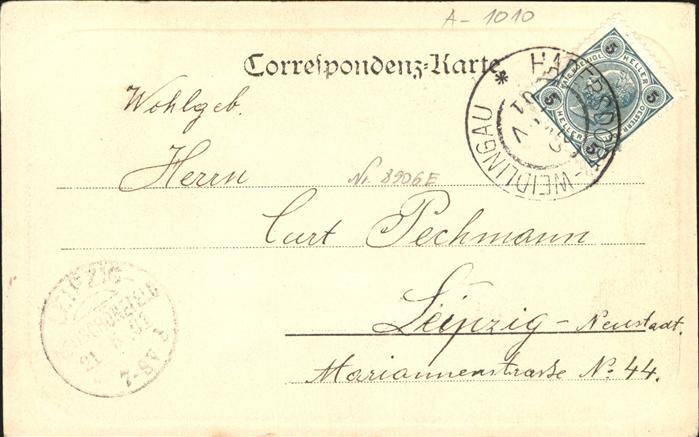 A- 1010
Correspondenz-Karte
HADERSDORF-WEIDLINGAU *
5 HELLER 5 HELLER
5 5
Wohlgeb.
Herrn
Nr. 8906E
Curt Pechmann
Leipzig - Neustadt.
Mariannenstrasse No. 44.
LEIPZIG
21
7-8V